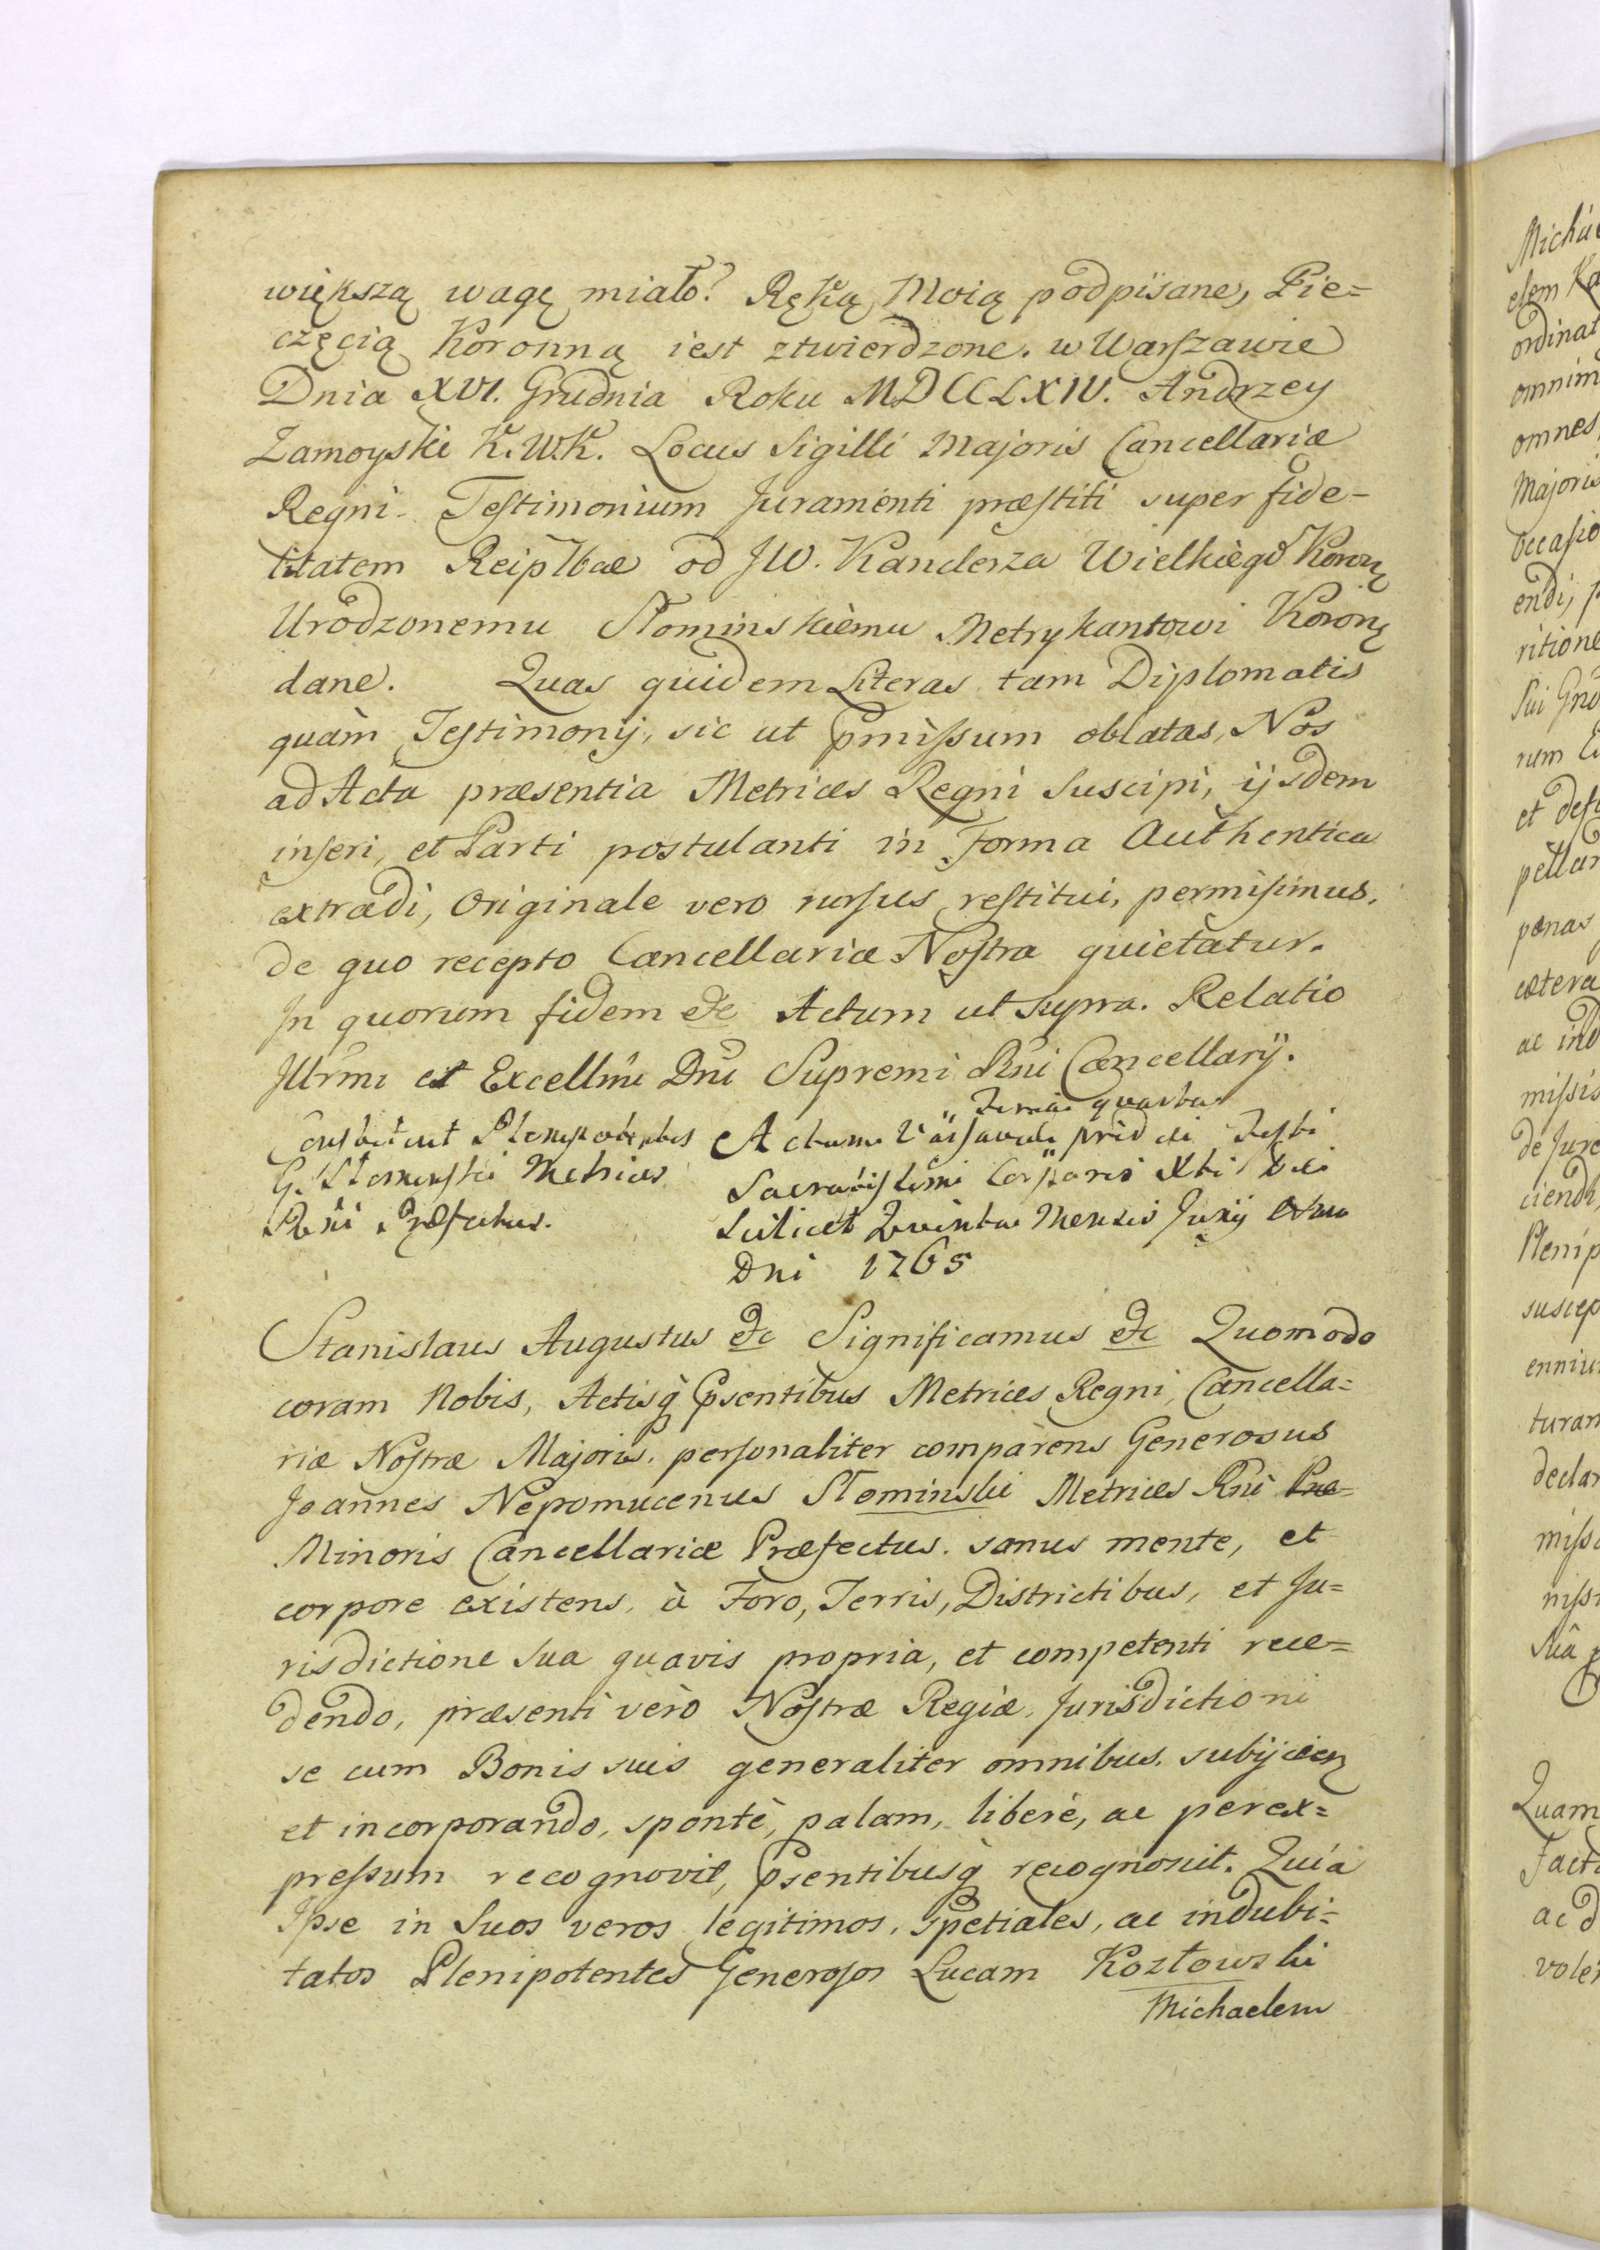 większą wagę miało? Ręką Moią podpisane, Pie=
częcią Koronną iest ztwierdzone. w Warszawie
Dnia XVI. Grudnia Roku MDCCLXIV. Andrzey
Zamoyski K.W.K. Locus Sigilli Majoris Cancellariæ
Regni. Testimonium Juramenti præstiti super fide-
litatem Reiplbae od JW. Kanclerza Wielkiego Koronę
Urodzonemu Słominskiemu Metrykantowi Koronę
dane. Quas quidem Literas tam Diplomatis
quàm Testimonij, sic ut Pmissum oblatas, Nos
ad Acta præsentia Metrices Regni Suscipi, ijsdem
inseri, et Parti postulanti in Forma Authentica
extradi, Originale vero rursus restitui, permisimus.
de quo recepto Cancellaria Nostra quietatur.
In quorum fidem etc Actum ut supra. Relatio
Illrmi et Excellmi Dni Supremi Rni Cancellarij.
Feria quarta
Constituit Plenipotentes
G. Słominski Metrices
Rni Præfectus.
Actum Varsaviæ pridie Festi
Sacratissimi Corporis Xti Dei
Scilicet Quinta Mensis Junij Anno
Dni 1765
Stanislaus Augustus etc Significamus etc Quomodo
coram Nobis, Actisq Psentibus Metrices Regni, Cancella=
riæ Nostræ Majoris, personaliter comparens Generosus
Joannes Nepomucenus Słominski Metrices Rni Præ=
Minoris Cancellariæ Præfectus. sanus mente, et
corpore existens, à Foro, Terris, Districtibus, et Ju=
risdictione Sua quavis propria, et competenti rece=
dendo, præsenti verò Nostræ Regiæ Jurisdictioni
se cum Bonis suis generaliter omnibus subijcien
et incorporando, spontè, palam, liberè, ac per ex=
pressum recognovit, Psentibusq recognoscit. Quia
Ipse in Suos veros legitimos, Spetiales, ac indubi=
tatos Plenipotentes Generosos Lucam Kozłowski
Michaelem